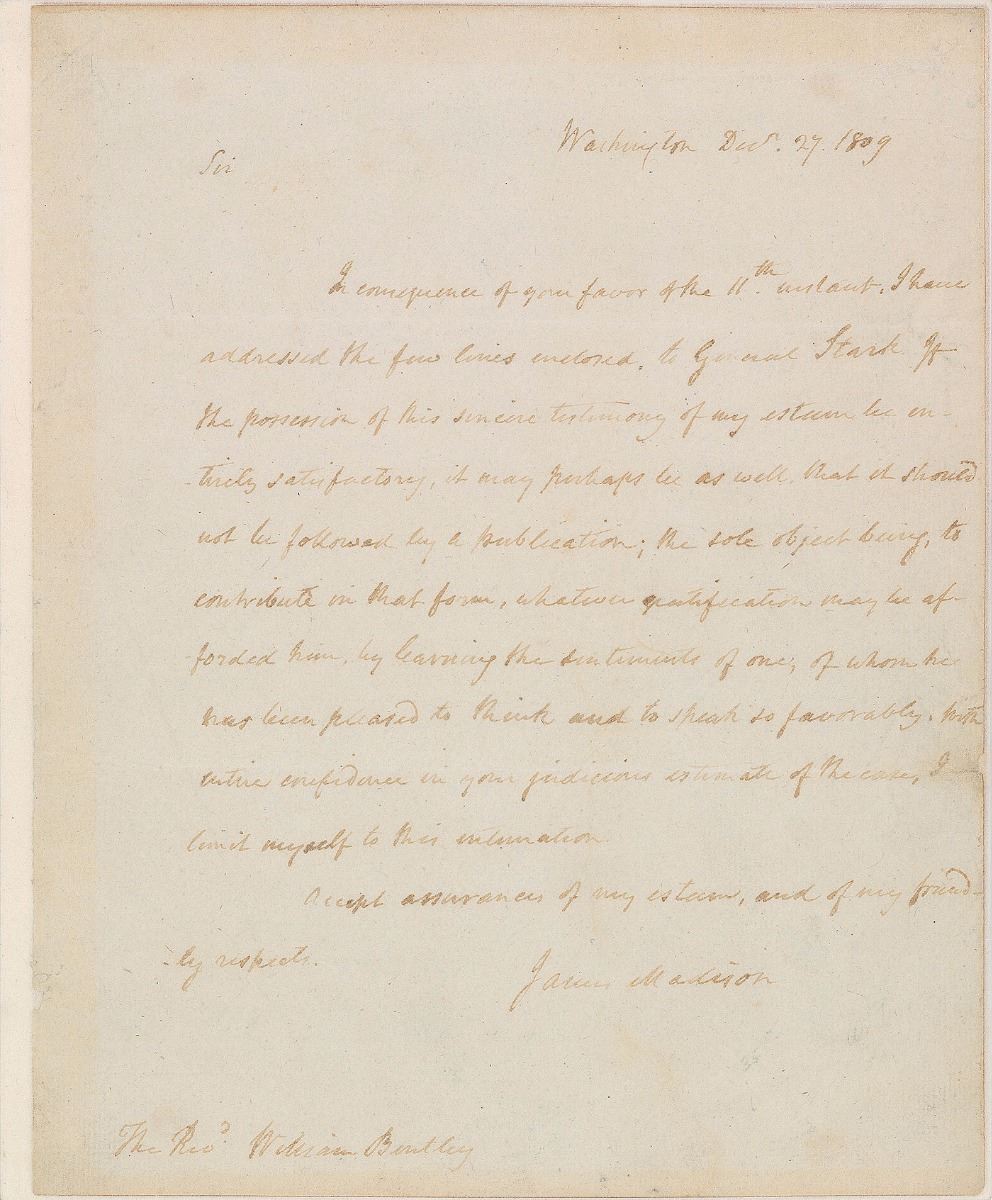 Washington Decr. 27. 1809
Sir
In consequence of your favor of the 11th. instant, I have
addressed the few lines enclosed, to General Stark. If
the possession of this sincere testimony of my esteem be en-
-tirely satisfactory, it may perhaps be as well, that it should
not be followed by a publication; the sole object being, to
contribute in that form, whatever gratification may be af-
-forded him, by learning the sentiments of one, of whom he
has been pleased to think and to speak so favorably. With
entire confidence in your judicious estimate of the case, I
limit myself to this intimation.
Accept assurances of my esteem, and of my friend-
-ly respects.
James Madison
The Revd. William Bentley